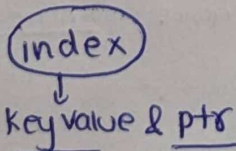 index
key value & ptr